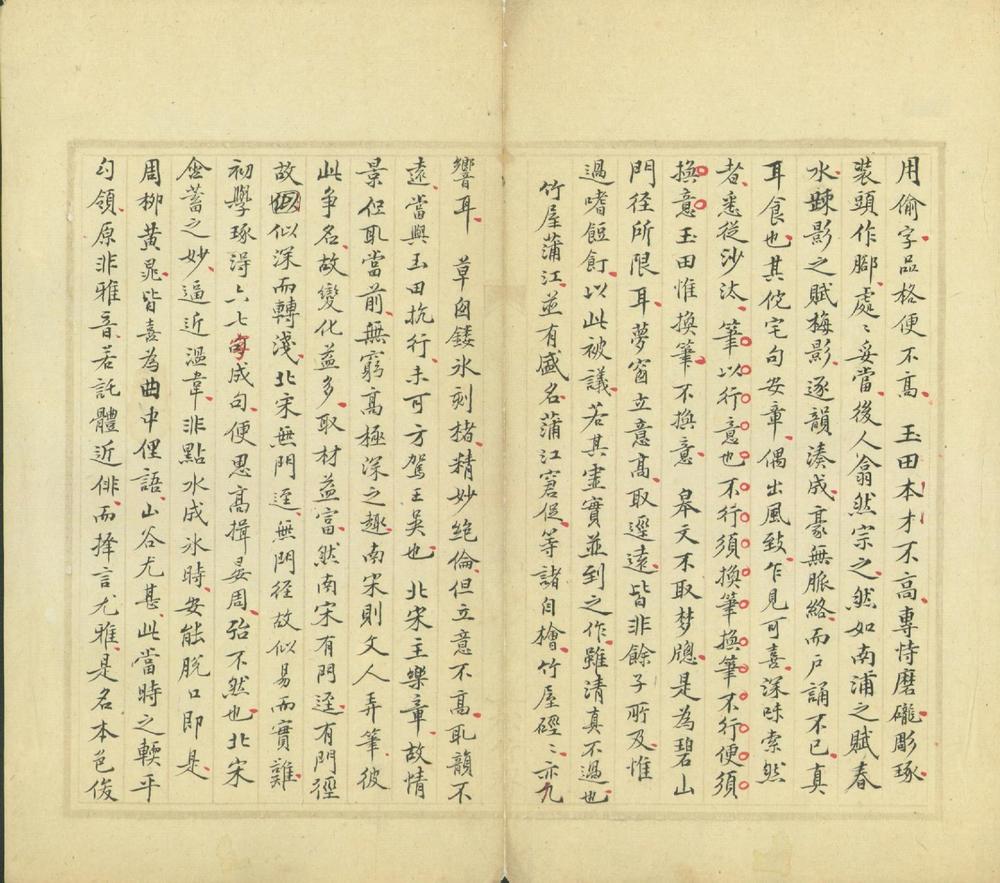 用偷字品格便不高　玉田本才不高專恃磨礲彫琢
裝頭作腳處〻妥當後人翕然宗之然如南浦之賦春
水踈影之賦梅影逐韻湊成毫無脈絡而戶誦不已真
耳食也其佗宅句安章偶出風致乍見可喜深味索然
者悉從沙汰　筆以行意也不行須換筆換筆不行便須
換意玉田惟換筆不換意　皋文不取梦牕是為碧山
門徑所限耳夢窗立意高取逕遠皆非餘子所及惟
過嗜餖飣以此被議若其虛實並到之作雖清真不過也
竹屋蒲江並有盛名蒲江窘促等諸自檜竹屋硜〻亦凡
響耳　草囪鏤冰刻楮精妙絕倫但立意不高取韻不
遠當與玉田抗行未可方駕王吳也　北宋主樂章故情
景但取當前無窮高極深之趣南宋則文人弄筆彼
此争名故變化益多取材益富然南宋有門逕有門徑
故似深而轉淺北宋無門逕無門徑故似易而實難
初學琢淂六七字成句便思高揖晏周殆不然也北宋
含蓄之妙逼近溫韋非點水成冰時安能脫口即是
周柳黃晁皆喜為曲中俚語山谷尤甚此當時之輭平
勾領原非雅音若託體近俳而擇言尤雅是名本色俊